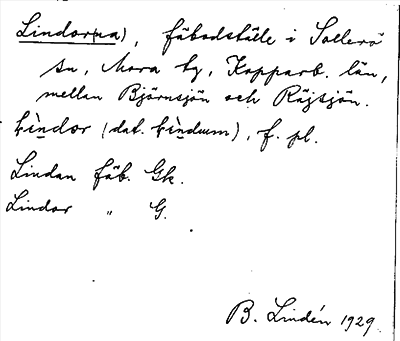 Lindor(na), fäbodställe i Sollerö
sn, Mora tg, Kopparb. län,
mellan Björnsjön och Räjsjön.
lìndor (dat. lìndum), f. pl.
Lindan fäb. Gk.
Lindor " G.
B. Lindén 1929